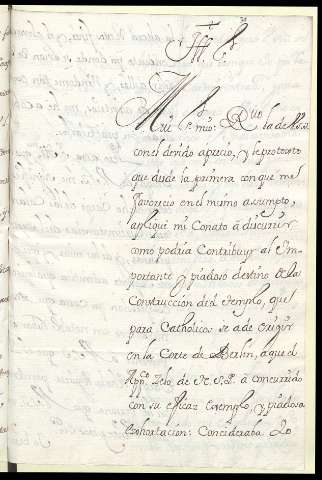 Muy Sr. mio: Rvo. la de V.S.I.
con el devido aprecio, y le protexto
que desde la primera con que me
favorecio en el mismo assumpto,
apliqué mi Conato à discurrir
como podria Contribuyr al Im-
portante y piadoso destino de la
Construccion de el Templo, que
para Catholicos se a de Erigir
en la Corte de Berlin, a que el
Appco. Zelo de V.S.I. à concurrido
con su eficaz Exemplo, y piadosa
Exhortacion: Concideraba Yo